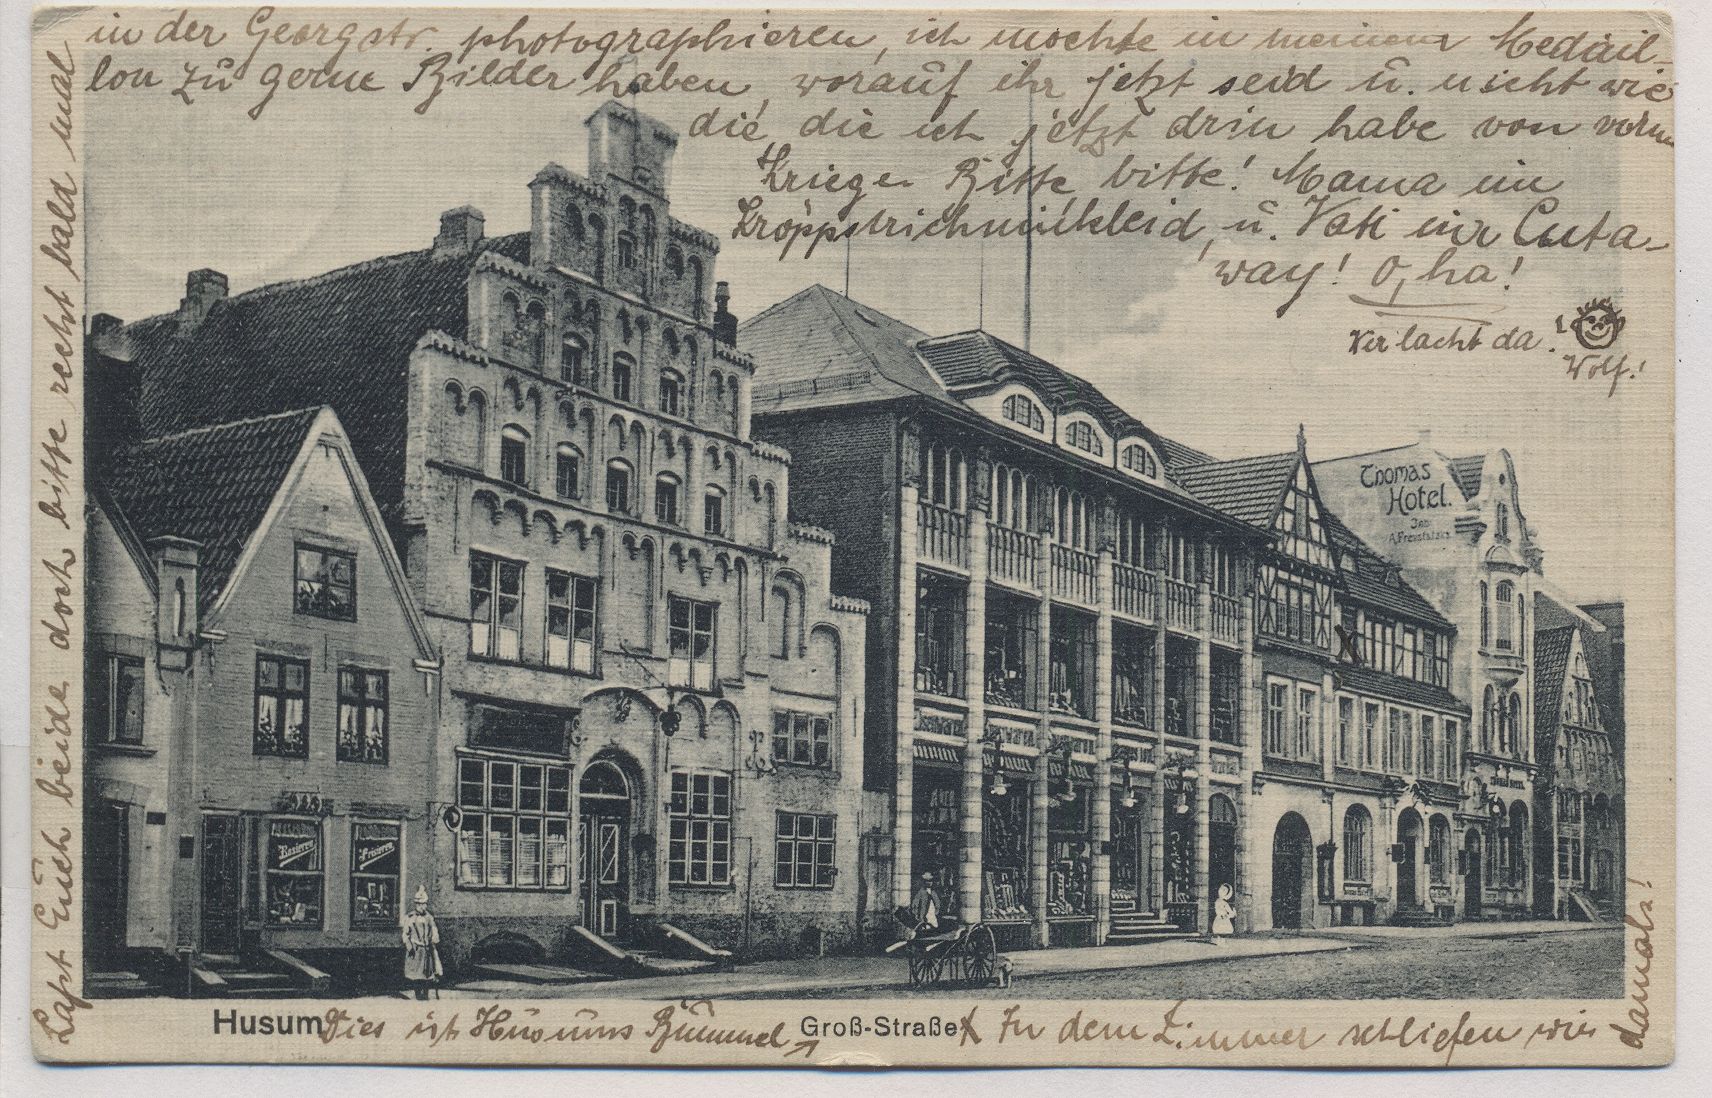 Laßt Euch beide doch bitte recht bald mal
in der Georgstr. photographieren, ich möchte in meinem Medail-
lon zu gerne Bilder haben, worauf ihr jetzt seid u. nicht wie
die, die ich jetzt drin habe von vorm
Kriege. Bitte bitte! Mama im
Kröppstrichmückleid, u. Vati im Cuta-
way! O, ha!
Wer lacht da!
Wolf!
Thomas
Hotel.
Inh.
Rasieren
Frisieren
X
Husum
Dies ist Husums Bummel
Groß-Straße
X In dem Zimmer schliefen wir
damals!